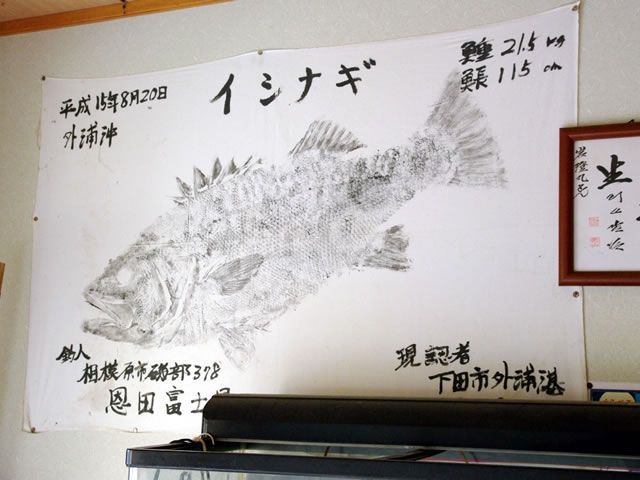 平成15年8月20日
外浦沖
イシナギ
魚重 21.5 kg
魚長 115 cm
釣人
相模原市磯部378
恩田富士
現認者
下田市外浦港